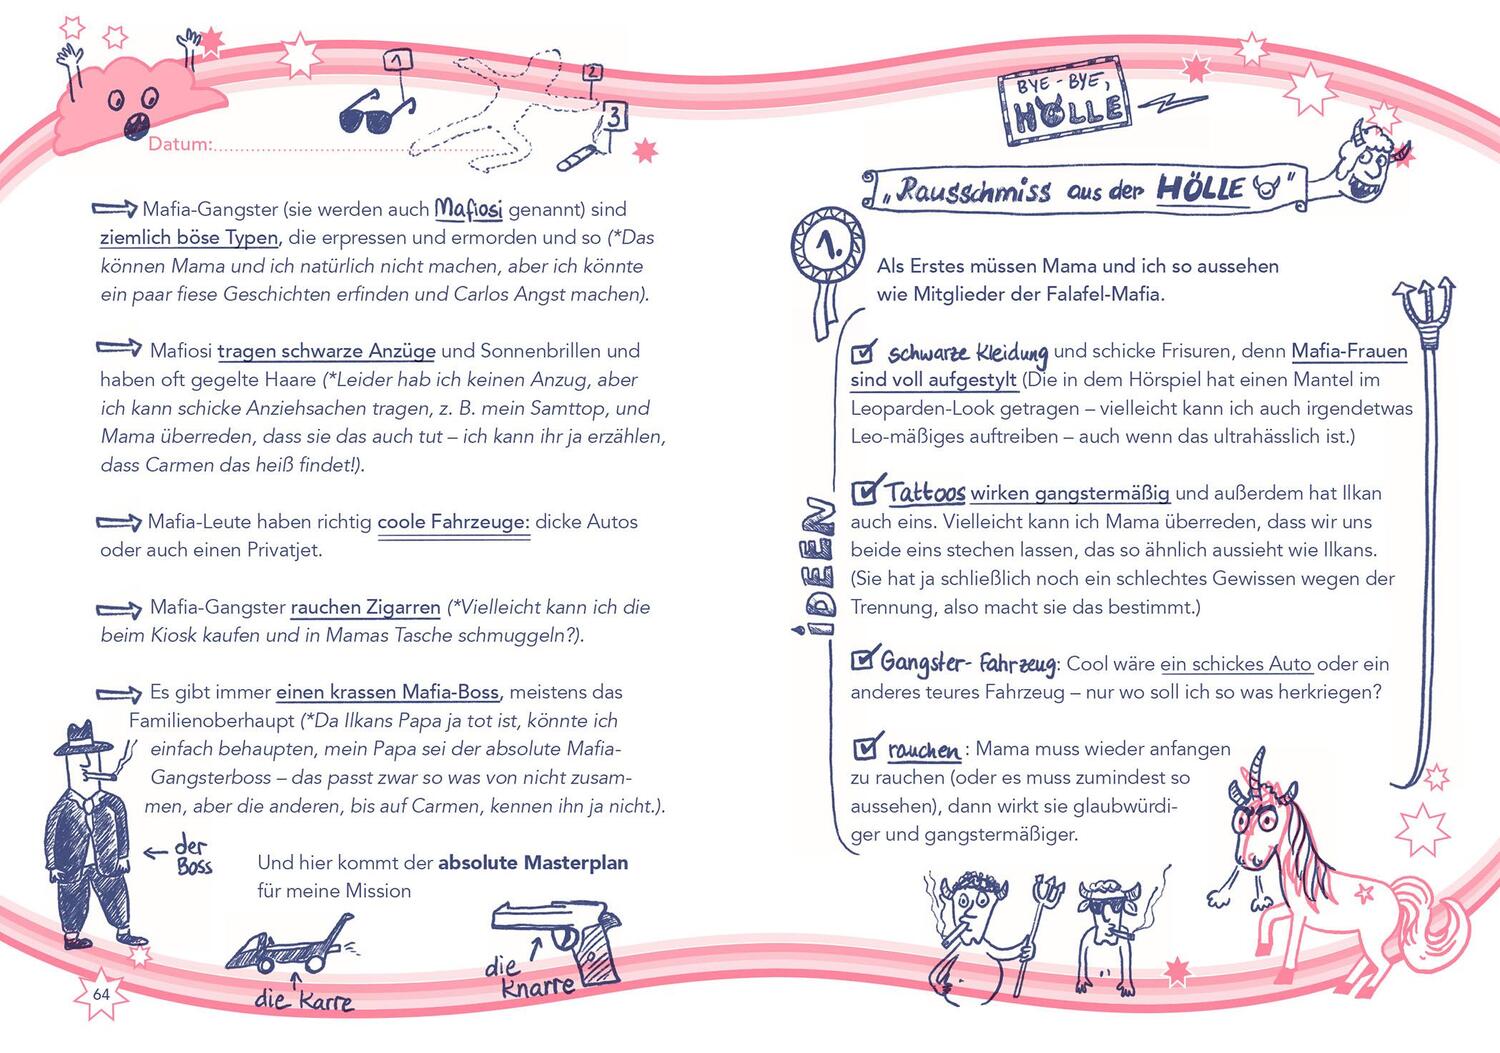 1
2
3
Datum:
Mafia-Gangster (sie werden auch Mafiosi genannt) sind
ziemlich böse Typen, die erpressen und ermorden und so (*Das
können Mama und ich natürlich nicht machen, aber ich könnte
ein paar fiese Geschichten erfinden und Carlos Angst machen).
Mafiosi tragen schwarze Anzüge und Sonnenbrillen und
haben oft gegelte Haare (*Leider hab ich keinen Anzug, aber
ich kann schicke Anziehsachen tragen, z. B. mein Samttop, und
Mama überreden, dass sie das auch tut – ich kann ihr ja erzählen,
dass Carmen das heiß findet!).
Mafia-Leute haben richtig coole Fahrzeuge: dicke Autos
oder auch einen Privatjet.
Mafia-Gangster rauchen Zigarren (*Vielleicht kann ich die
beim Kiosk kaufen und in Mamas Tasche schmuggeln?).
Es gibt immer einen krassen Mafia-Boss, meistens das
Familienoberhaupt (*Da Ilkans Papa ja tot ist, könnte ich
einfach behaupten, mein Papa sei der absolute Mafia-
Gangsterboss – das passt zwar so was von nicht zusam-
men, aber die anderen, bis auf Carmen, kennen ihn ja nicht.).
der
Boss
Und hier kommt der absolute Masterplan
für meine Mission
die Karre
die
Knarre
64
BYE-BYE,
HÖLLE
„Rausschmiss aus der HÖLLE"
1.
Als Erstes müssen Mama und ich so aussehen
wie Mitglieder der Falafel-Mafia.
IDEEN
schwarze Kleidung und schicke Frisuren, denn Mafia-Frauen
sind voll aufgestylt (Die in dem Hörspiel hat einen Mantel im
Leoparden-Look getragen – vielleicht kann ich auch irgendetwas
Leo-mäßiges auftreiben – auch wenn das ultrahässlich ist.)
Tattoos wirken gangstermäßig und außerdem hat Ilkan
auch eins. Vielleicht kann ich Mama überreden, dass wir uns
beide eins stechen lassen, das so ähnlich aussieht wie Ilkans.
(Sie hat ja schließlich noch ein schlechtes Gewissen wegen der
Trennung, also macht sie das bestimmt.)
Gangster-Fahrzeug: Cool wäre ein schickes Auto oder ein
anderes teures Fahrzeug – nur wo soll ich so was herkriegen?
rauchen: Mama muss wieder anfangen
zu rauchen (oder es muss zumindest so
aussehen), dann wirkt sie glaubwürdi-
ger und gangstermäßiger.